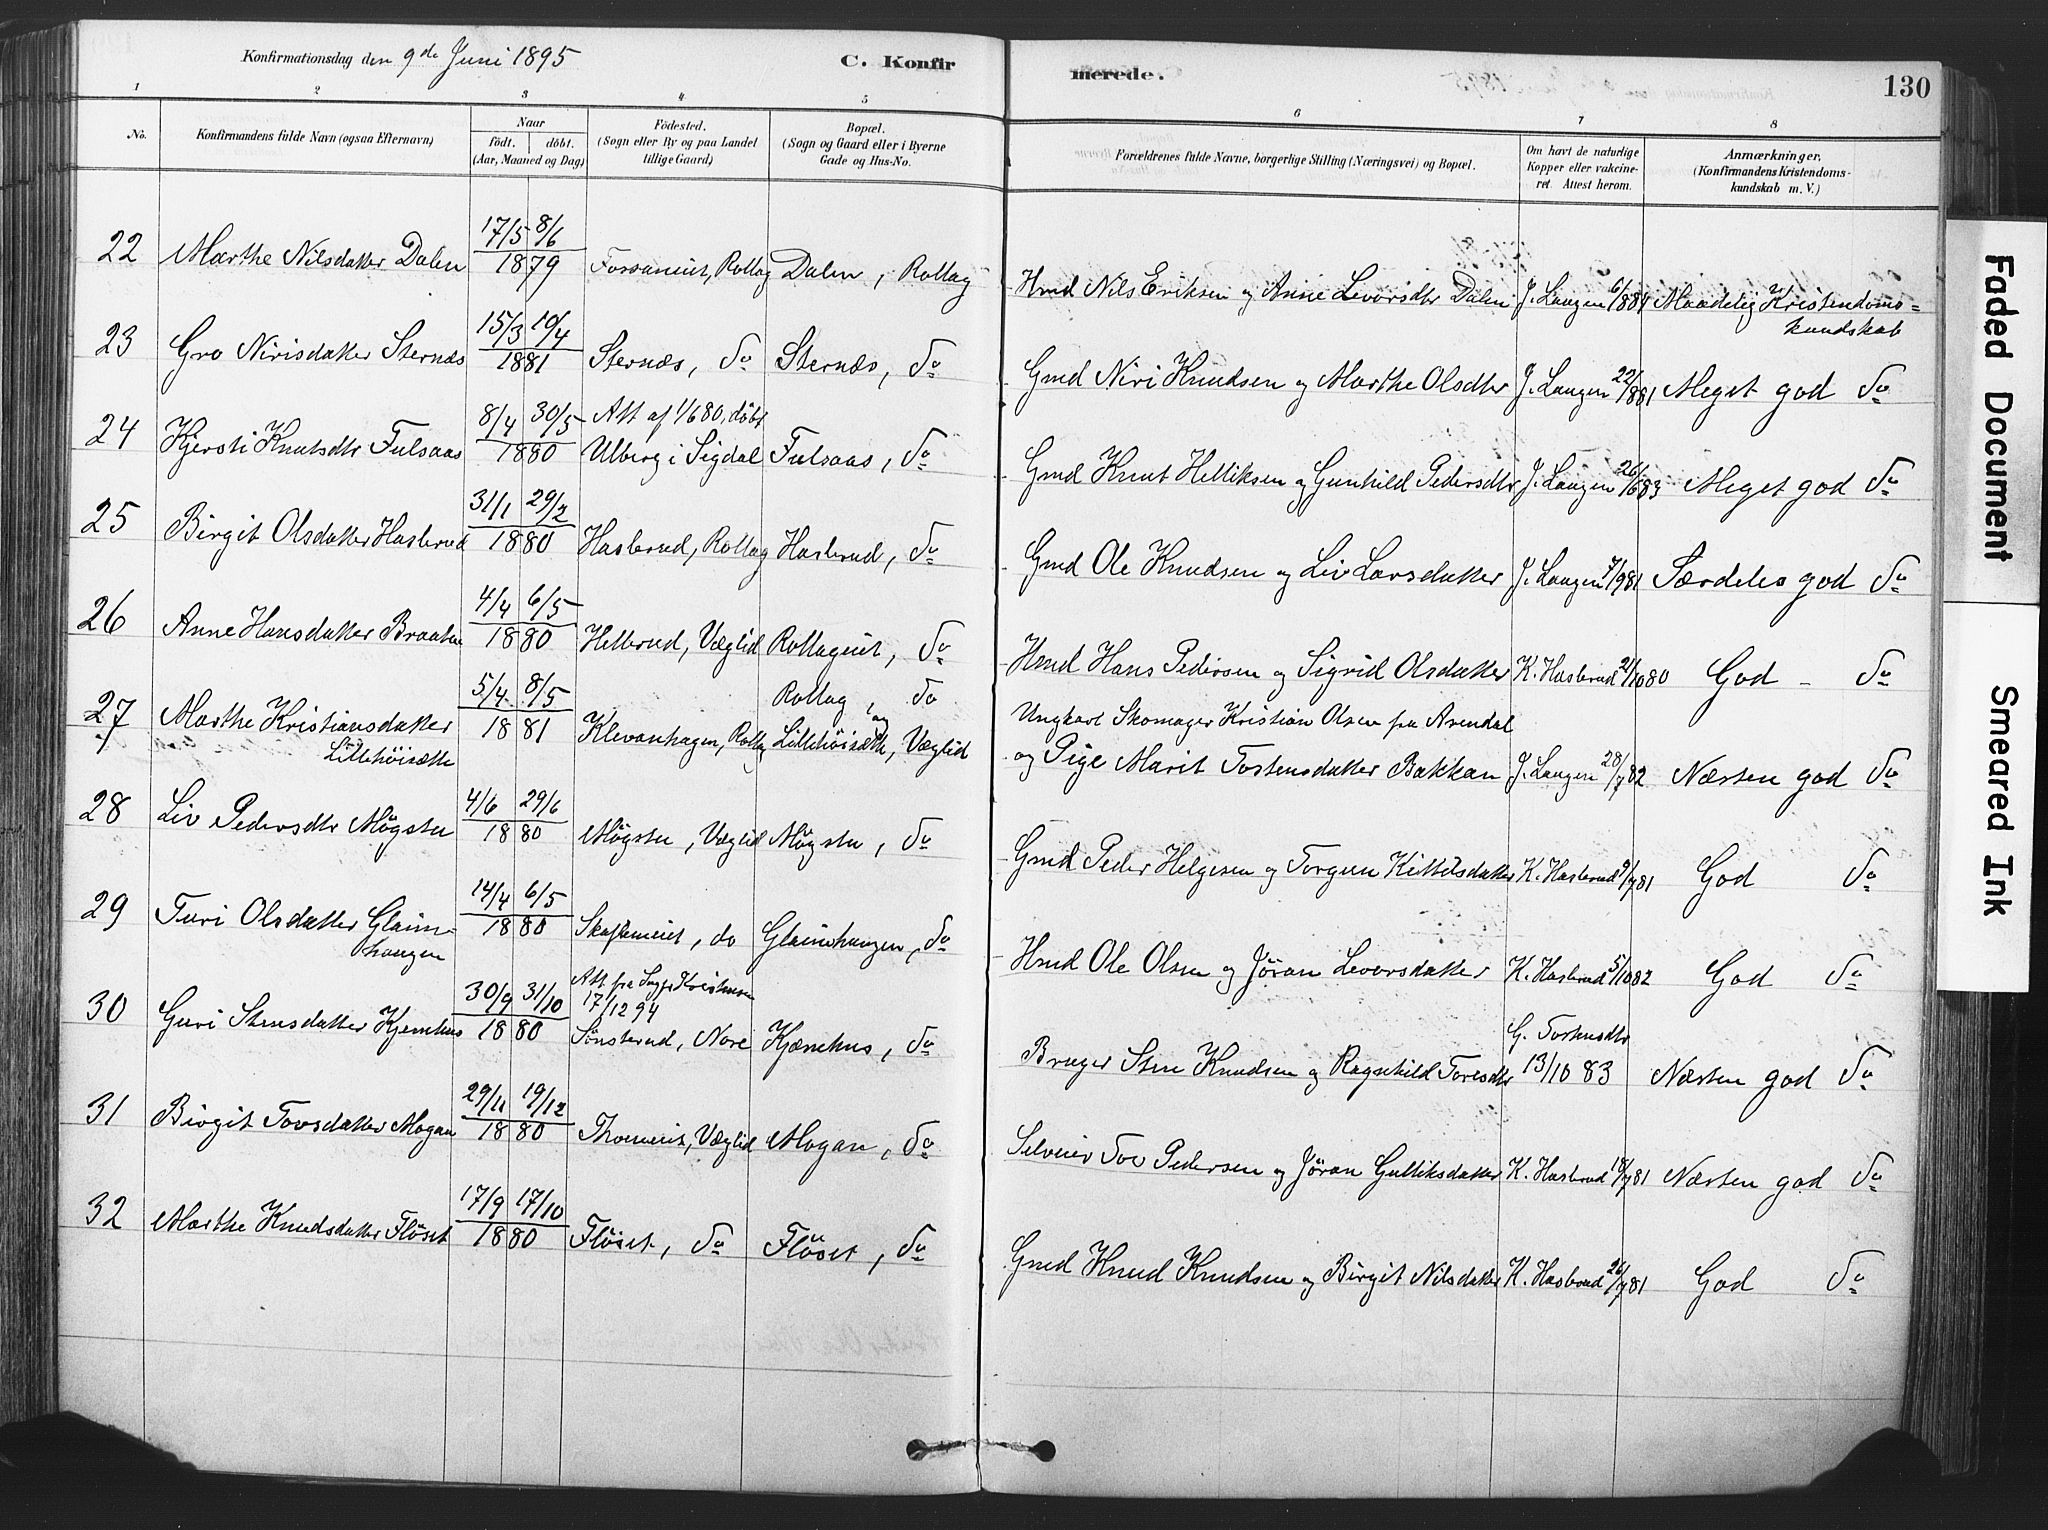 Konfirmationsdag den 9de Juni 1895
C. Konfirmerede.
130
1 2 3 4 5 6 7 8
No.
Konfirmandens fulde Navn (ogsaa Efternavn)
Naar
födt. döbt.
(Aar, Maaned og Dag)
Födested.
(Sogn eller By og paa Landet
tillige Gaard)
Bopæl.
(Sogn og Gaard eller i Byerne
Gade og Hus-No.
Forældrenes fulde Navne, borgerlige Stilling (Næringsvei) og Bopæl.
Om havt de naturlige
Kopper eller vakcine-
ret. Attest herom.
Anmærkninger.
(Konfirmandens Kristendoms-
kundskab m. V.)
22 Marthe Nilsdatter Dalen 17/5 8/6 1879 Fossaneiet, Rollag Dalen, Rollag Hmd Nils Eriksen og Anne Levorsdtr Dalen J. Laugen 6/884 Maadelig Kristendoms-
kundskab
23 Gro Nirisdatter Sternæs 15/3 19/4 1881 Sternæs, do Sternæs, do Gmd Niri Knudsen og Marthe Olsdtr J. Laugen 22/881 Meget god do
24 Kjersti Knutsdtr Fulsaas 8/4 30/5 1880 Att af 1/680, döbt
Ulberg i Sigdal Fulsaas, do Gmd Knut Helliksen og Gunhild Pedersdtr J. Laugen 26/683 Meget god do
25 Birgit Olsdatter Haslerud 31/1 29/2 1880 Haslerud, Rollag Haslerud, do Gmd Ole Knudsen og Liv Larsdatter J. Laugen 7/981 Særdeles god do
26 Anne Hansdatter Braaten 4/4 6/5 1880 Hellerud, Væglid Rollageiet, do Hmd Hans Pedersen og Sigrid Olsdatter K. Haslerud 21/1080 God - do
27 Marthe Kristiansdatter
Lillehöisætte 5/4 8/5 1881 Klevenhagen, Rollag Rollag, do
og Lillehöisætte, Væglid Ungkarl Skomager Kristian Olsen fra Arendal
og Pige Marit Tostensdatter Bakkan J. Laugen 28/782 Næsten god do
28 Liv Pedersdtr Mögstu 4/6 29/6 1880 Mögstu, Væglid Mögstu, do Gmd Peder Helgesen og Torgun Kittilsdatter K. Haslerud 9/781 God do
29 Turi Olsdatter Glaim-
haugen 14/4 6/5 1880 do Glaimhaugen, do Hmd Ole Olsen og Jöran Levorsdatter K. Haslerud 5/1082 God do
30 Guri Stensdatter Kjemhus 30/9 31/10 1880 Att fra
17/12 94
Sönsterud, Nore Kjæmhus, do Bruger Sten Knudsen og Ragnhild Toresdtr G. Tostensdtr
13/10 83 Næsten god do
31 Birgit Tovsdatter Mogan 29/11 19/12 1880 Væglid Mogan, do Selveier Tov Pedersen og Jöran Gulliksdatter K. Haslerud 18/781 Næsten god do
32 Marthe Knudsdatter Flöset 17/9 17/10 1880 Flöset, do Flöset, do Gmd Knud Knudsen og Birgit Nilsdatter K. Haslerud 26/781 God do
Faded Document
Smeared Ink